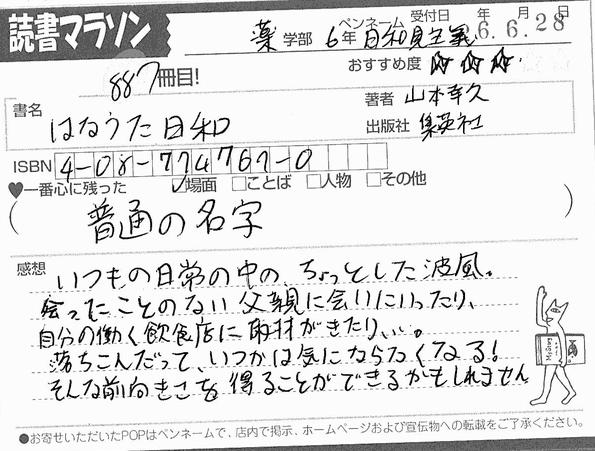 読書マラソン
887冊目!
薬学部 6年 ペンネーム 日和見主義 受付日 6年6月28日
おすすめ度 ☆☆☆
書名 はなうた日和
著者 山本幸久
出版社 集英社
ISBN 4-08-774761-0
♥一番心に残った ☑場面 □ことば □人物 □その他
(普通の名字)
感想
いつもの日常の中の、ちょっとした波風。
会ったことのない父親に会いにいったり、
自分の働く飲食店に取材がきたり、、、。
落ちこんだって、いつかは気にならなくなる!
そんな前向きさを得ることができるかもしれません
●お寄せいただいたPOPはペンネームで、店内で掲示、ホームページおよび宣伝物への転載をご了承ください。